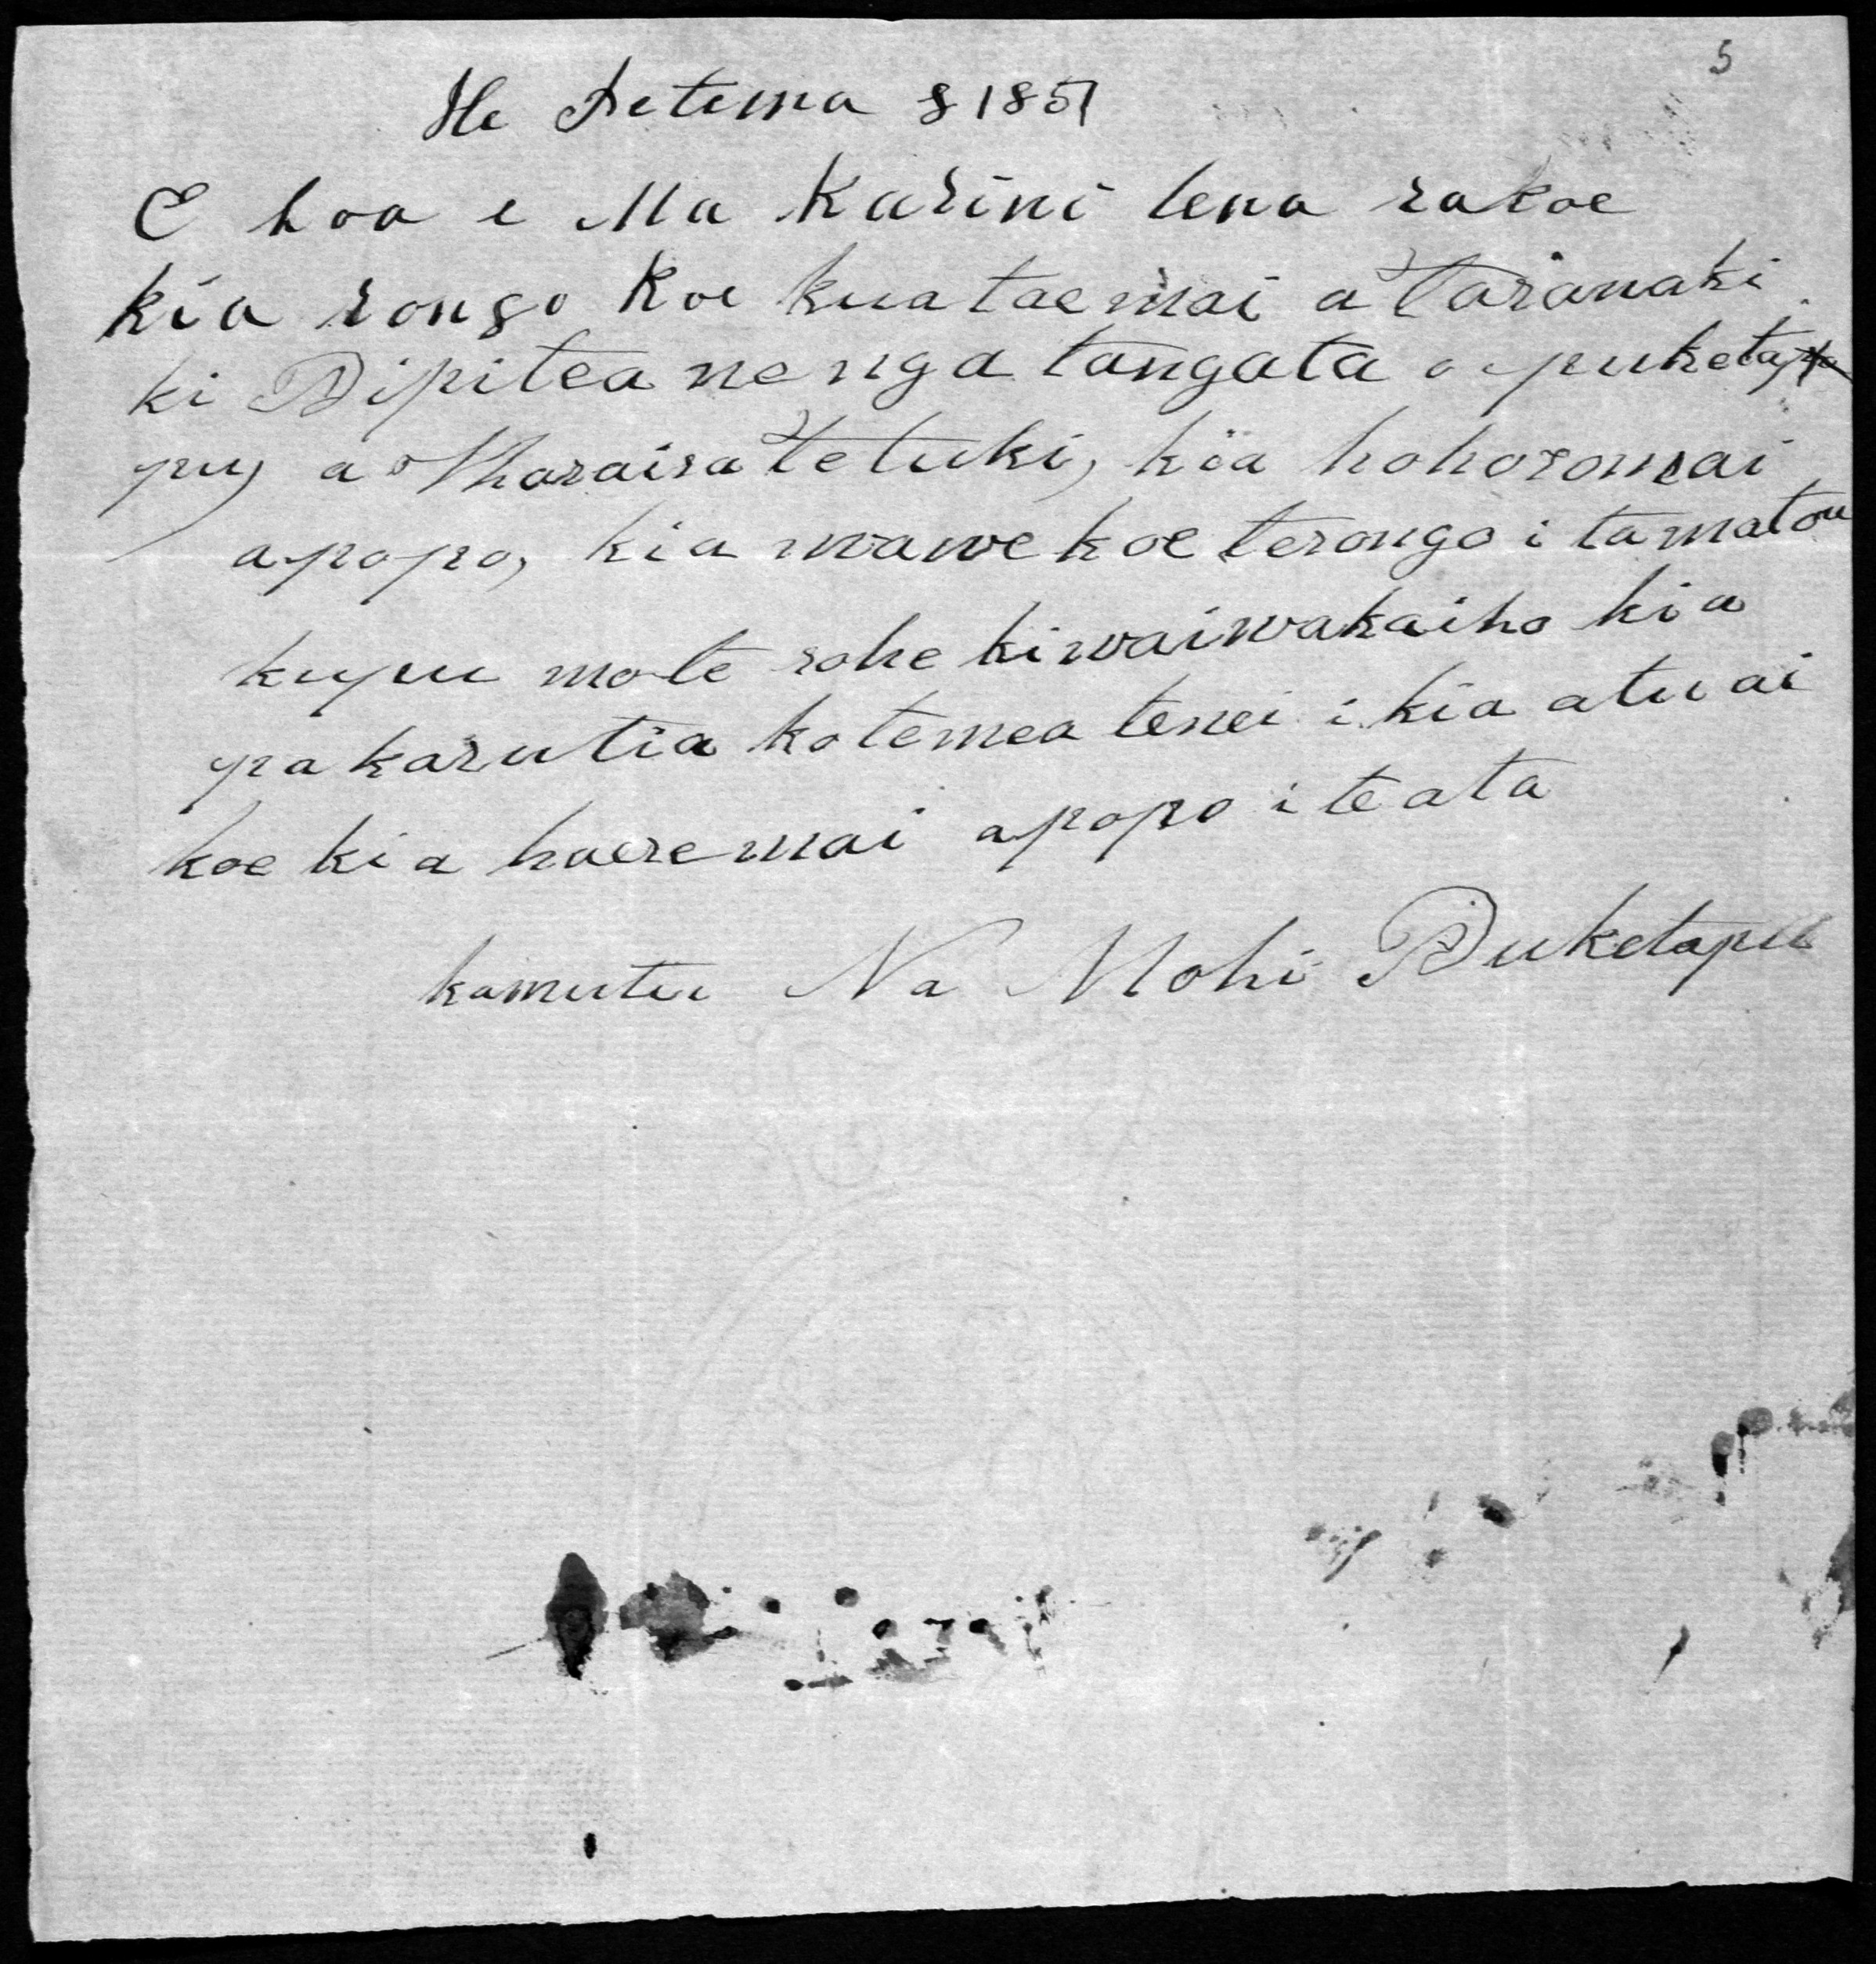 5
He Hetema 8 1851
E hoa e Ma Karini tena rakoe
kia rongo koe kua tae mai a Taranaki
ki Pipitea ne nga tangata o puketap
pu, a Wharaira te tuki, kia hohoromai
apopo, kia wawe koe terongo i tamatou
kupu mote rohe kiwaiwakaiho kia
pakarutia kotemea tenei i kia atu ai
koe kia haeremai apopo iteata
kamutu Na Mohi Puketapu